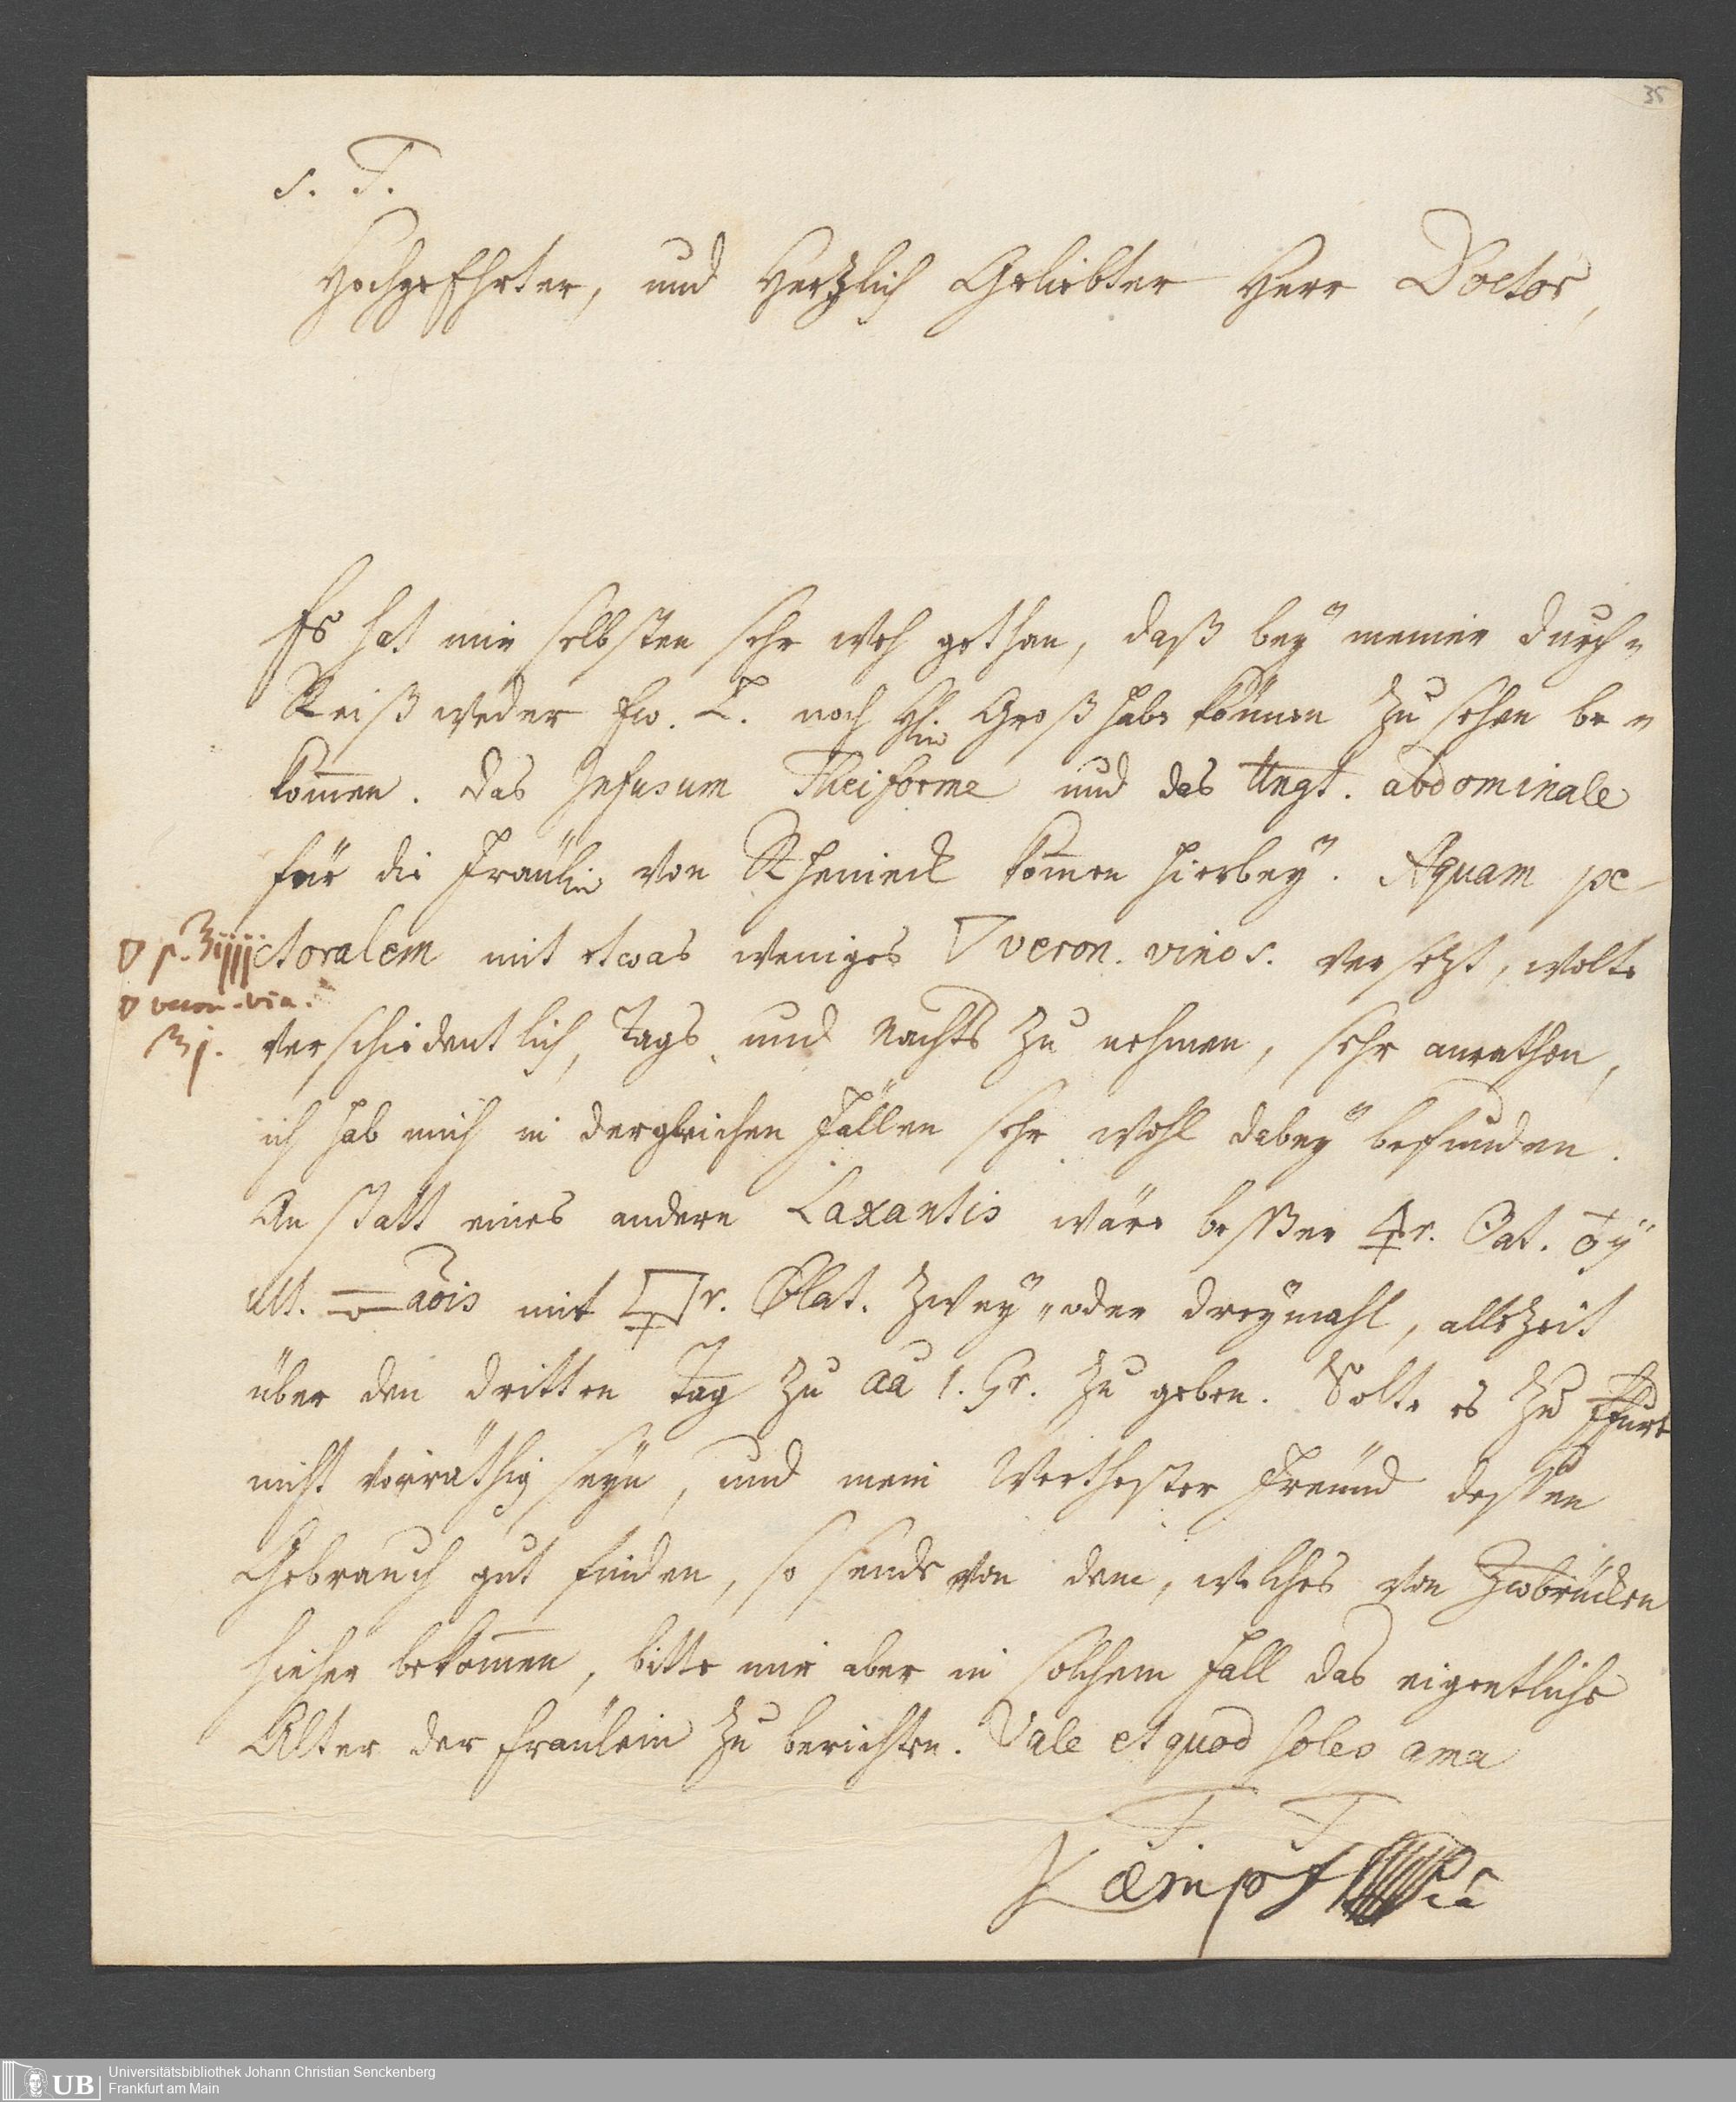 35
S. T.
HochgeEhrter, und Hertzlich Geliebter Herr Doctor,
Es hat mir selbsten sehr weh gethan, daß bey meiner durch-
Reiß weder Ew. L. noch H. Groß habe können zu sehen be-
kom̄en. Das Infusum Theiforme und das Ungt. abdominale
für die Fräulin von Rhenieck kom̄en hierbey. Aquam pe-
ctoralem mit etwas weniges ▽ veron. vinos. versetzt, wolte
▽ p. ʒiiij
▽ veron. vin.
ʒj.
verschiedentlich, Tags und Nachts zu nehmen, sehr anrathen,
ich hab mich in dergleichen Fällen sehr wohl dabey befunden.
An statt eines andern Laxantis wäre beßer Cat.
mit Olat. zwey- oder dreymahl, allezeit
über den dritten Tag zu aa 1. Gr. zu geben. Solte es zu Ffurt
nicht vorräthig seyn, und mein Werthester Freund deßen
Gebrauch gut finden, so sende von dem, welches von Zwbrücken
hieher bekom̄en, bitte mir aber in solchem Fall das eigentliche
Alter der Fräulein zu berichten. Vale et quod soles ama
Kaempf
UB Universitätsbibliothek Johann Christian Senckenberg
Frankfurt am Main